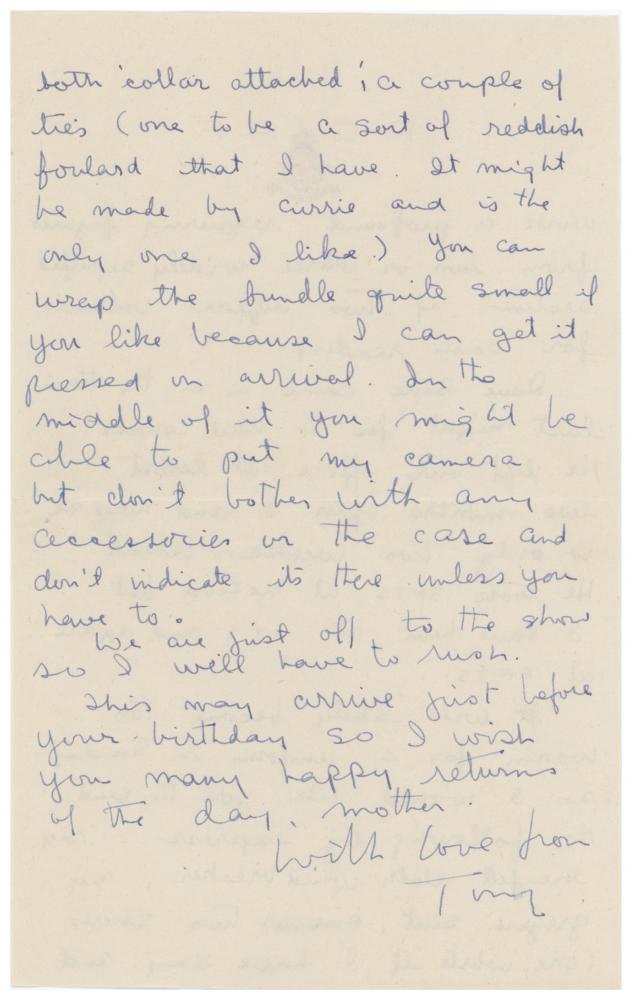 both 'collar attached'; a couple of
ties (one to be a sort of reddish
foulard that I have. It might
be made by currie and is the
only one I like.) You can
wrap the bundle quite small if
you like because I can get it
pressed on arrival. In the
middle of it you might be
able to put my camera
but don't bother with any
accessories or the case and
don't indicate its there unless you
have to.
We are just off to the show
so I will have to rush.
This may arrive just before
your birthday so I wish
you many happy returns
of the day, mother.
With love from
Tony